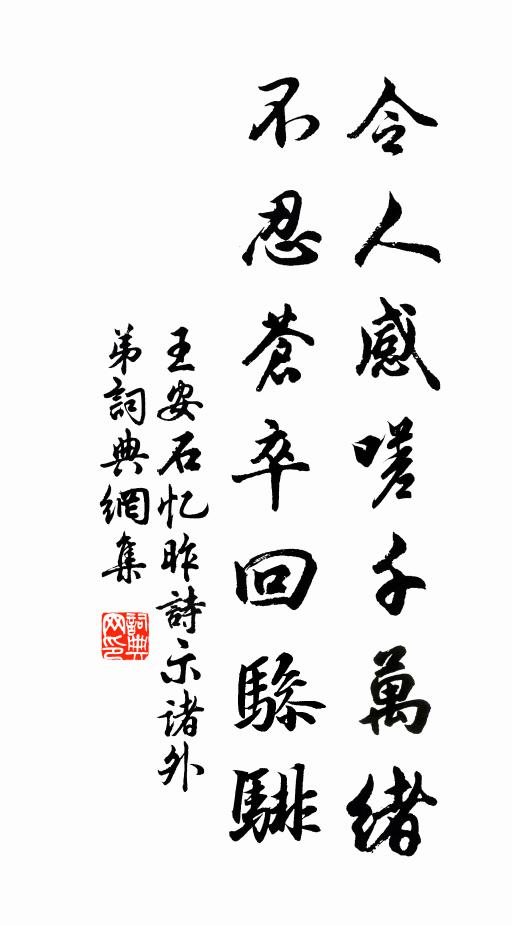 令人感嗟千萬緒
不忍蒼卒回驂騑
王安石忆昨詩示诸外
弟詞典網集
詞典网印